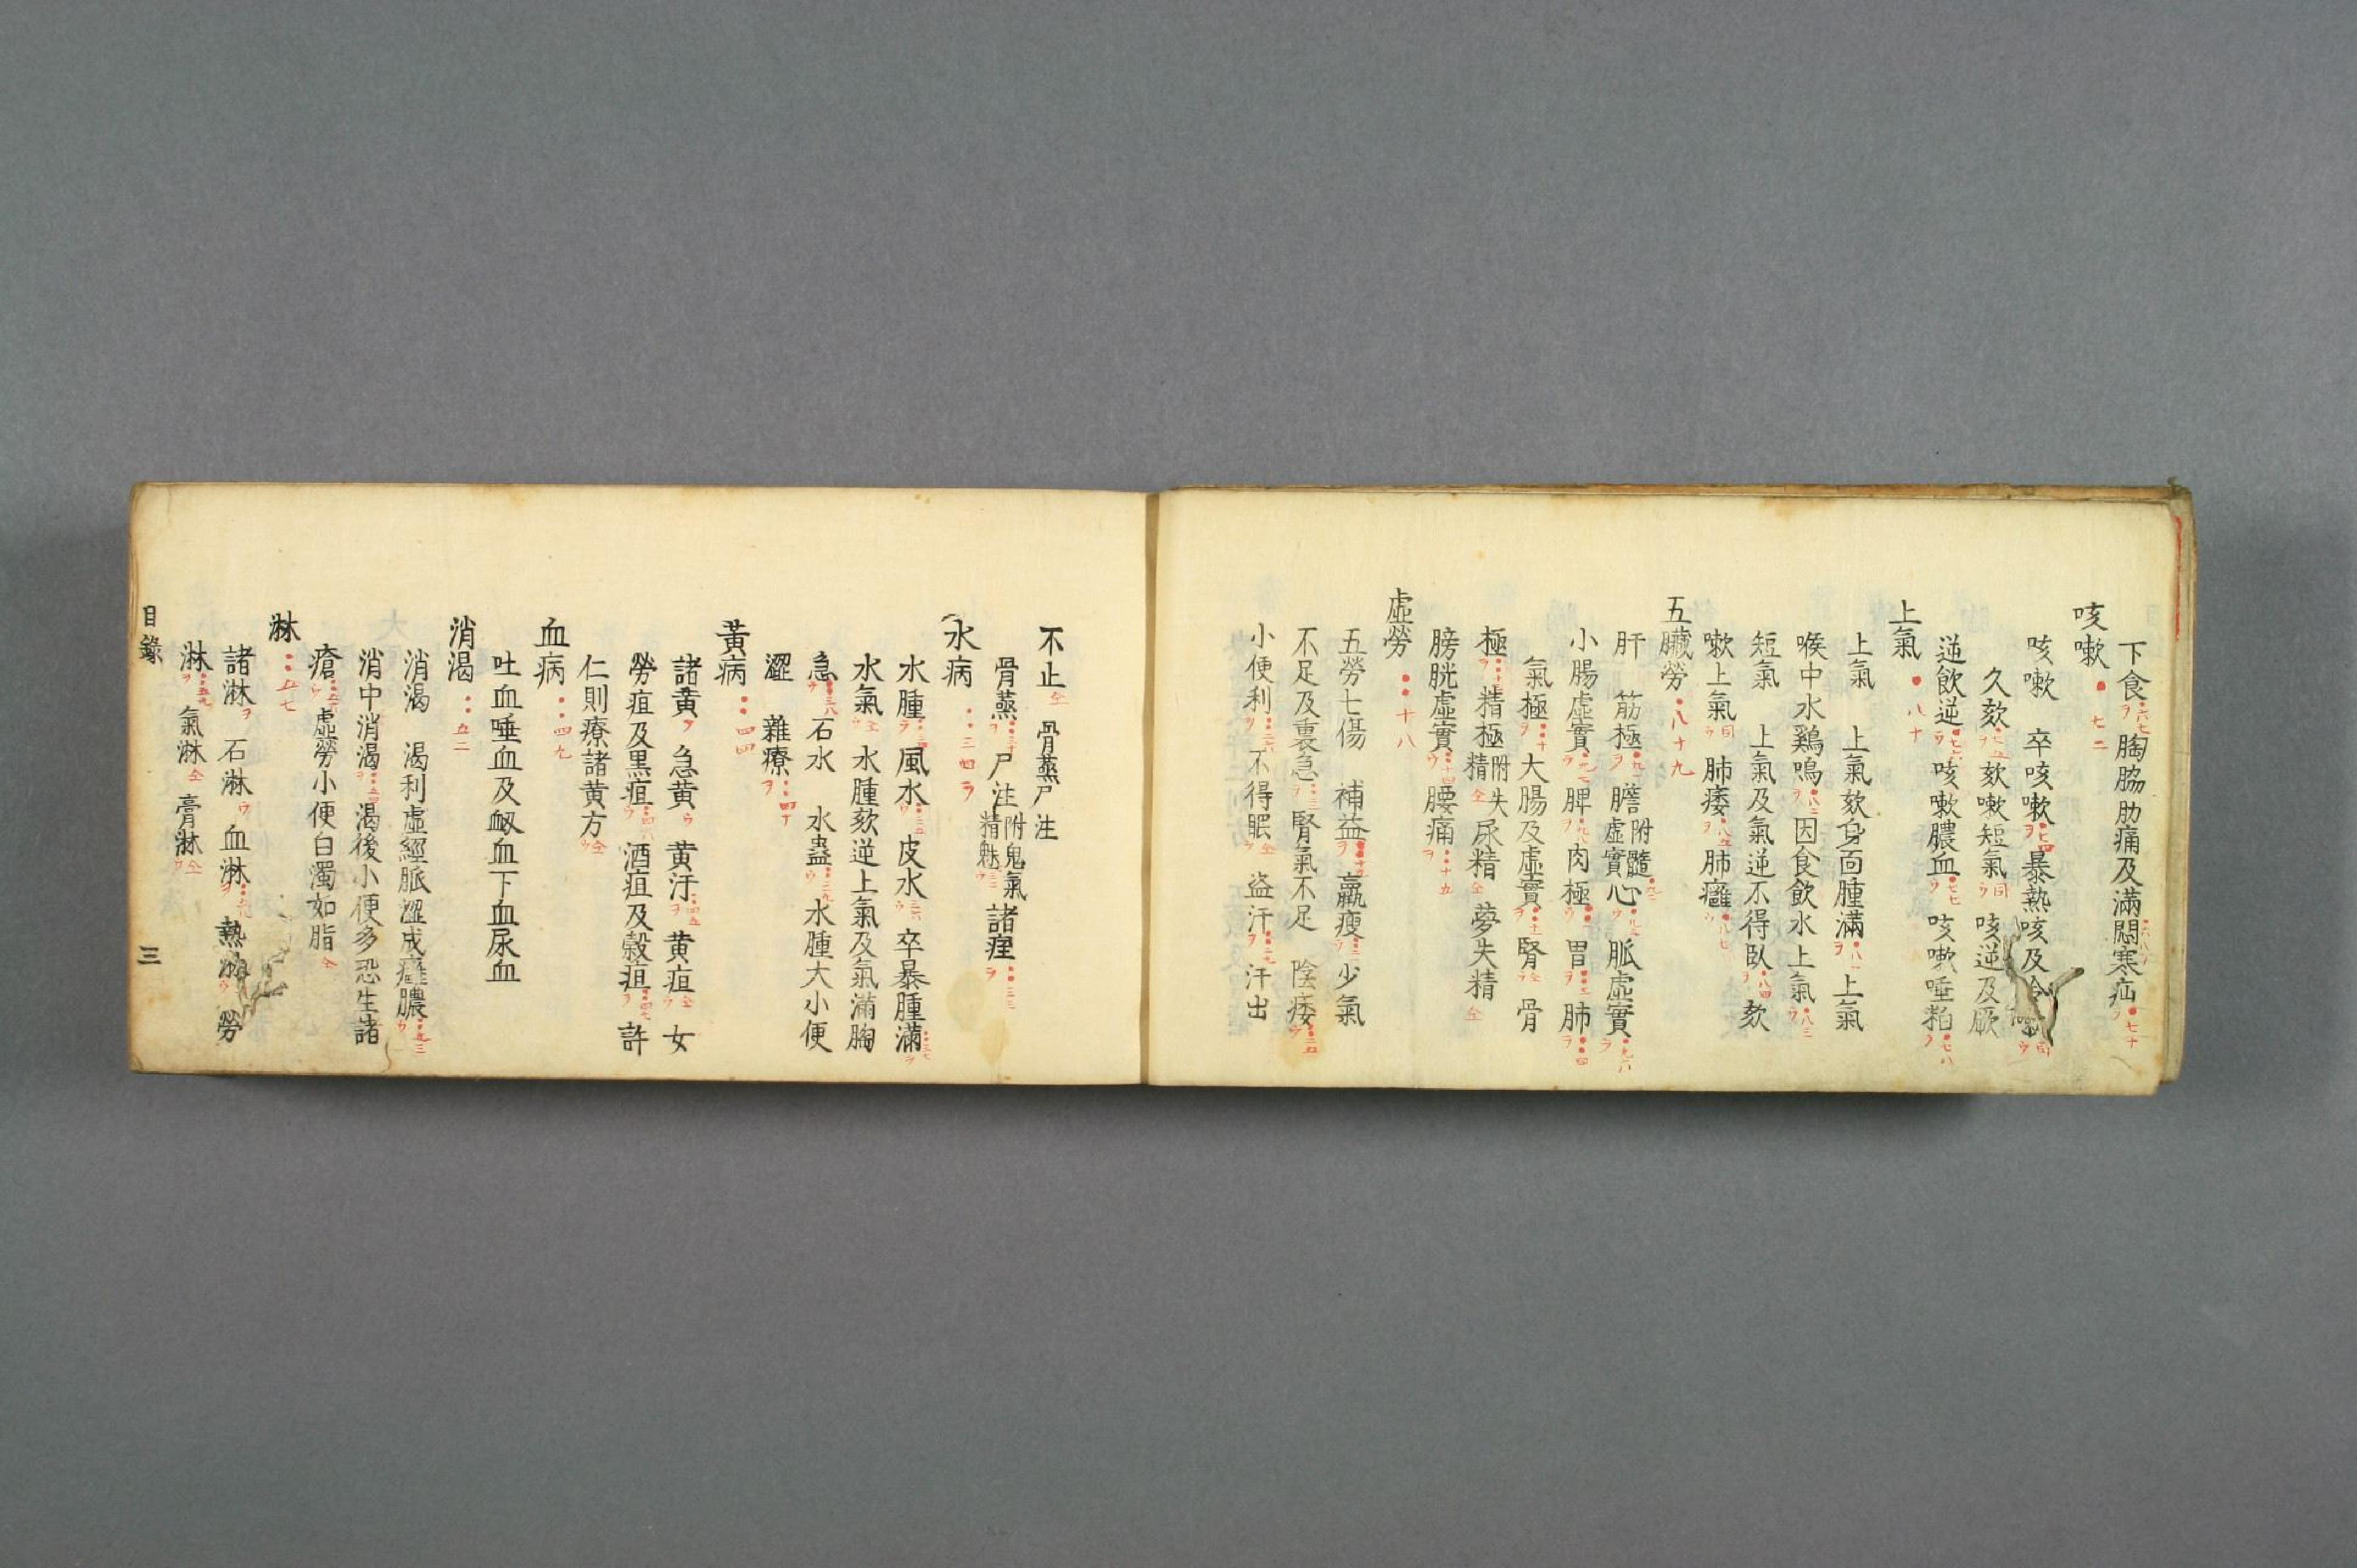 下食 胸脇肋痛及滿悶寒疝
咳嗽 七二
咳嗽 卒咳嗽 暴熱咳及冷
久欬 欬嗽短氣 咳逆及厥
逆飲逆 咳嗽膿血 咳嗽唾粘
上氣 八十
上氣 上氣欬身面腫滿 上氣
喉中水鷄鳴 因食飲水上氣
短氣 上氣及氣逆不得臥 欬
嗽上氣 肺痿 肺癰
五臟勞 八十九
肝 筋極 膽附髓虛實 心 脈虛實
小腸虛實 脾 肉極 胃 肺
氣極 大腸及虛實 腎 骨
極 精極附失精 尿精 夢失精
膀胱虛實 腰痛
虛勞 十八
五勞七傷 補益 羸瘦 少氣
不足及裏急 腎氣不足 陰痿
小便利 不得眠 盜汗 汗出
不止 骨蒸尸注
骨蒸 尸注附鬼氣精魅 諸痓
水病 三四ヲ
水腫 風水 皮水 卒暴腫滿
水氣 水腫欬逆上氣及氣滿胸
急 石水 水蠱 水腫大小便
澀 雜療
黃病 四四
諸黃 急黃 黃汗 黃疸 女
勞疸及黑疸 酒疸及穀疸 許
仁則療諸黃方
血病 四九
吐血唾血及衂血下血尿血
消渴 五二
消渴 渴利虛經脈澀成癰膿
消中消渴 渴後小便多恐生諸
瘡 虛勞小便白濁如脂
淋 五七
諸淋 石淋 血淋 熱淋 勞
淋 氣淋 膏淋
目錄 三